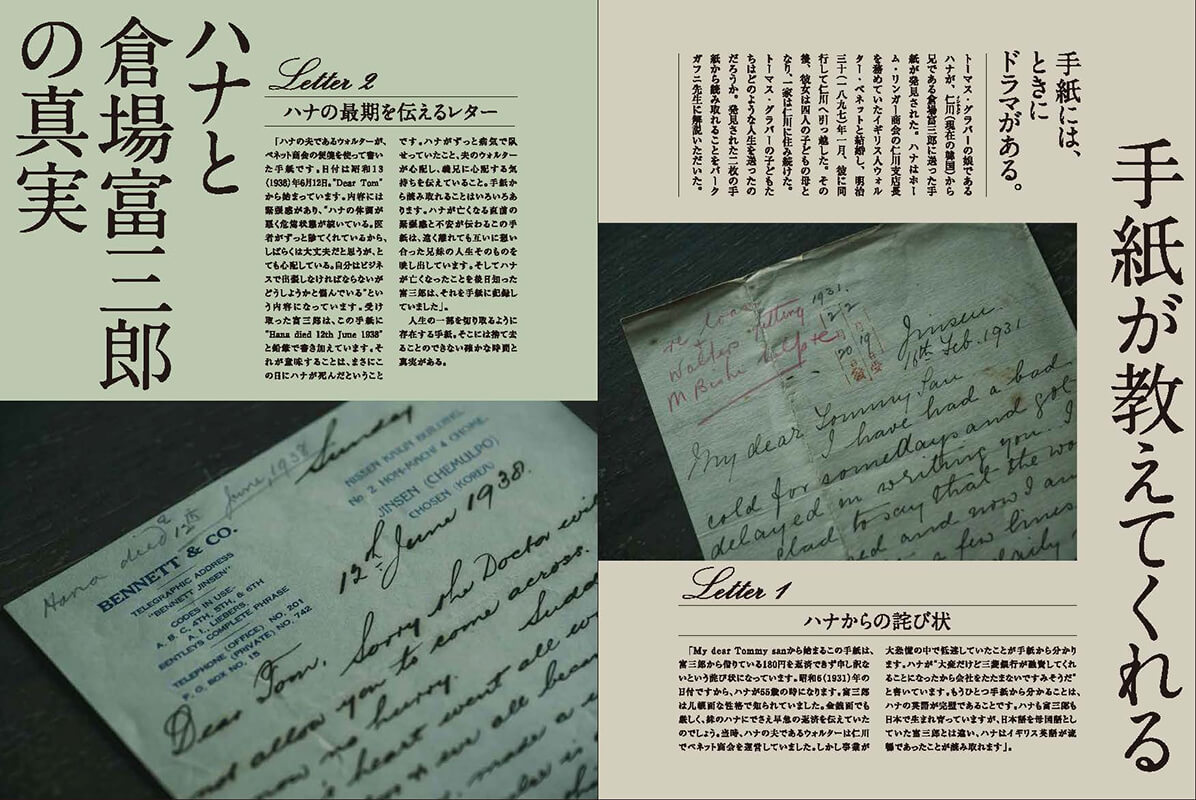 手紙が教えてくれる
手紙には、
ときに
ドラマがある。
トーマス・グラバーの娘である
ハナが、仁川(現在の韓国)から
兄である倉場富三郎に送った手
紙が発見された。ハナはホー
ム・リンガー商会の仁川支店長
を務めていたイギリス人ウォル
ター・ベネットと結婚し、明治
三十(一八九七)年一月、彼に同
行して仁川へ引っ越した。その
後、彼女は四人の子どもの母と
なり、一家は仁川に住み続けた。
トーマス・グラバーの子どもた
ちはどのような人生を送ったの
だろうか。発見された二枚の手
紙から読み取れることをバーク
ガフニ先生に解説いただいた。
Jinsen.
16th Feb. 1931
My dear Tommy San
I have had a bad
cold for somedays and got
delayed in writing you. I
glad to say that the wo
and now I am
a few lines
Letter 1
ハナからの詫び状
「My dear Tommy sanから始まるこの手紙は、
富三郎から借りている180円を返済できず申し訳な
いという詫び状になっています。昭和6(1931)年の
日付ですから、ハナが55歳の時になります。富三郎
は几帳面な性格で知られていました。金銭面でも
厳しく、妹のハナにでさえ早急の返済を伝えていた
のでしょう。当時、ハナの夫であるウォルターは仁川
でベネット商会を運営していました。しかし事業が
大恐慌の中で低迷していたことが手紙から分かり
ます。ハナが“大変だけど三菱銀行が融資してくれ
ることになったから会社をたたまないですみそうだ”
と書いています。もうひとつ手紙から分かることは、
ハナの英語が完璧であることです。ハナも富三郎も
日本で生まれ育っていますが、日本語を母国語とし
ていた富三郎とは違い、ハナはイギリス英語が流
暢であったことが読み取れます」。
ハナと
倉場富三郎
の真実
Letter 2
ハナの最期を伝えるレター
「ハナの夫であるウォルターが、
ベネット商会の便箋を使って書い
た手紙です。日付は昭和13
(1938)年6月12日。“Dear Tom”
から始まっています。内容には
緊張感があり、“ハナの体調が
悪く危篤状態が続いている。医
者がずっと診てくれているから、
しばらくは大丈夫だと思うが、と
ても心配している。自分はビジネ
スで出張しなければならないが
どうしようかと悩んでいる”とい
う内容になっています。受け
取った富三郎は、この手紙に
“Hana died 12th June 1938”
と鉛筆で書き加えています。そ
れが意味することは、まさにこ
の日にハナが死んだということ
です。ハナがずっと病気で臥
せっていたこと、夫のウォルター
が心配し、義兄に心配する気
持ちを伝えていること。手紙か
ら読み取れることはいろいろあ
ります。ハナが亡くなる直前の
緊張感と不安が伝わるこの手
紙は、遠く離れても互いに想い
合った兄妹の人生そのものを
映し出しています。そしてハナ
が亡くなったことを後日知った
富三郎は、それを手紙に記録し
ていました」。
人生の一部を切り取るように
存在する手紙。そこには捨て去
ることのできない確かな時間と
真実がある。
Hana died 12th June, 1938
Sunday
NISSEN KAIUN BUILDING
No. 2 HON-MACHI 4 CHOME,
JINSEN (CHEMULPO)
CHOSEN (KOREA)
BENNETT & CO.
TELEGRAPHIC ADDRESS
"BENNETT JINSEN"
CODES IN USE.
A. B. C. 4TH, 5TH, & 6TH
A. I., LIEBERS.
BENTLEYS COMPLETE PHRASE
TELEPHONE (OFFICE) NO. 201
TELEPHONE (PRIVATE) NO. 742
P. O. BOX NO. 15
12th June 1938.
Dear Tom, Sorry the Doctor wi
not allow you to come across.
now no hurry. Sudd
heart went all w
all beca
made a